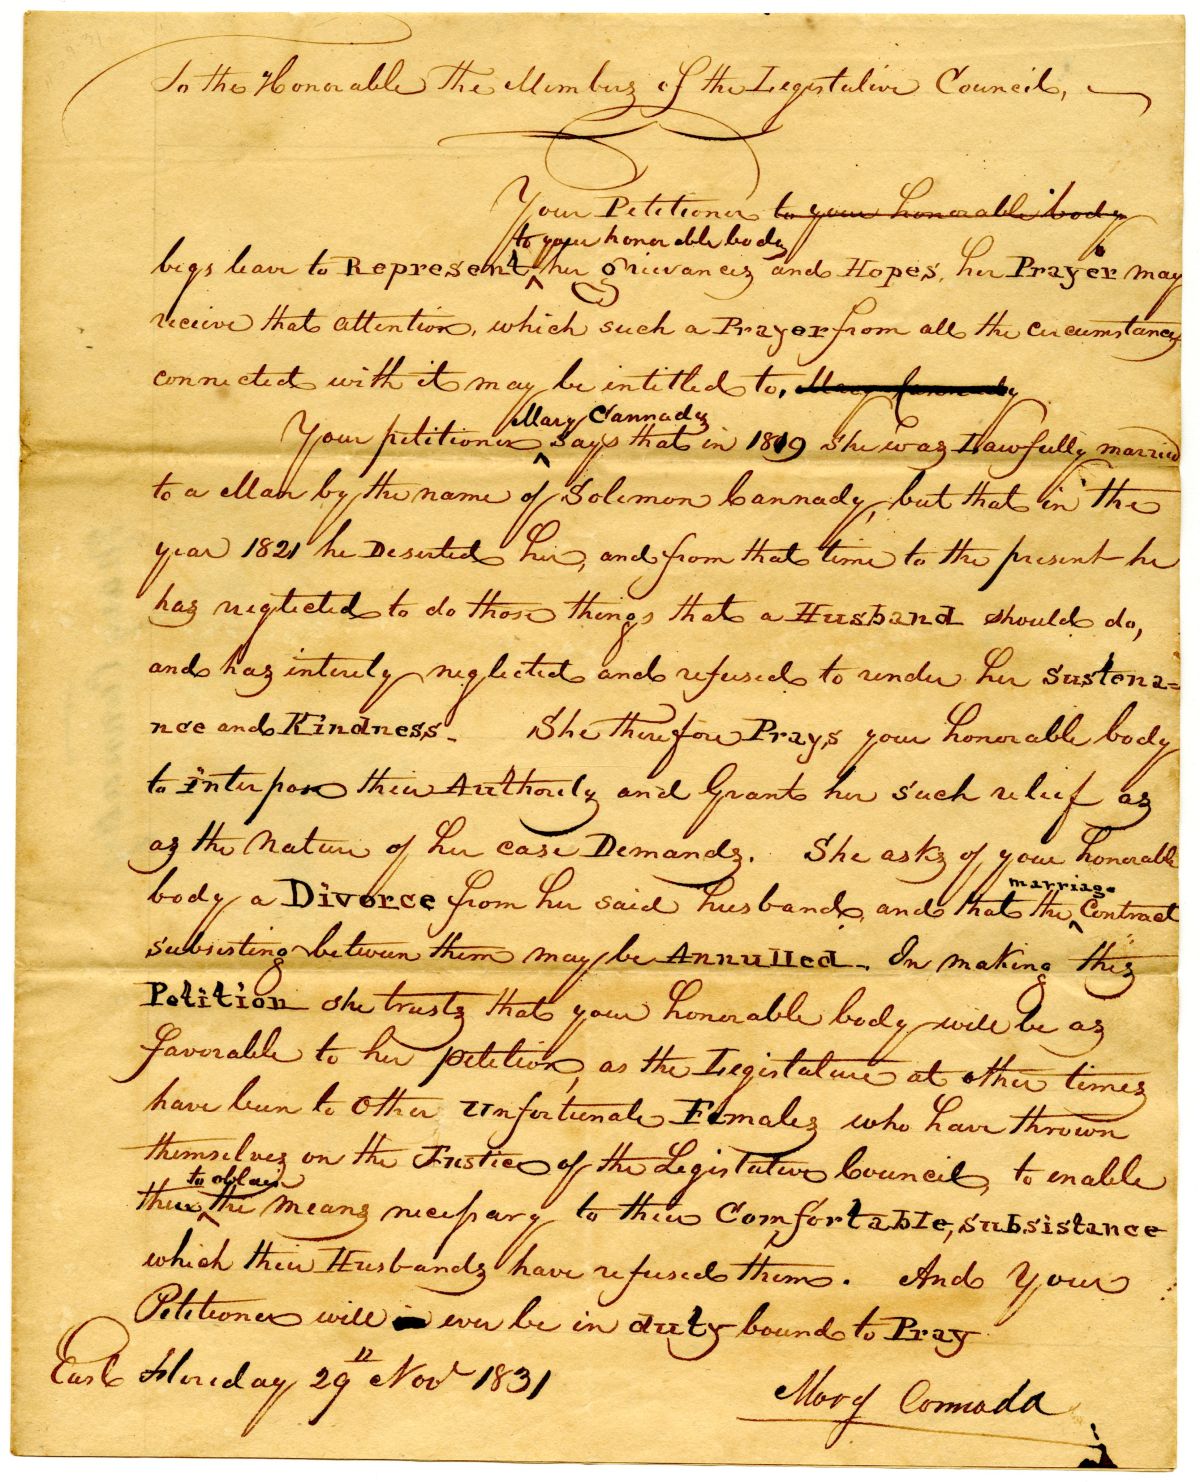 To the Honorable the Members of the Legislative Council,
Your Petitioner to your honorable body
to your honorable body
begs leave to Represent her grievances and Hopes, her Prayer may
receive that attention, which such a Prayer from all the circumstances
connected with it may be intitled to, Mary Cannady
Mary Cannady
Your petitioner says that in 1819 she was Lawfully married
to a Man by the name of Solemon Cannady, but that in the
year 1821 he Deserted her, and from that time to the present he
has neglected to do those things that a Husband should do,
and has intirely neglected and refused to render her Sustena=
nce and Kindness. She therefore Prays your honorable body
to interpose their Authority and Grant her such relief as
as the Nature of her case Demands. She asks of your honorable
marriage
body a Divorce from her said husband, and that the Contract
subsisting between them may be Annulled. In making this
Petition she trusts that your honorable body will be as
favorable to her petition, as the Legislature at other times
have been to other Unfortunate Females who have thrown
themselves on the Justice of the Legislative Council, to enable
to obtain
them the means necessary to their Comfortable, subsistance
which their Husbands have refused them. And Your
Petitioner will ever be in duty bound to Pray
East Floreday 29th Novr 1831
Mary Connada